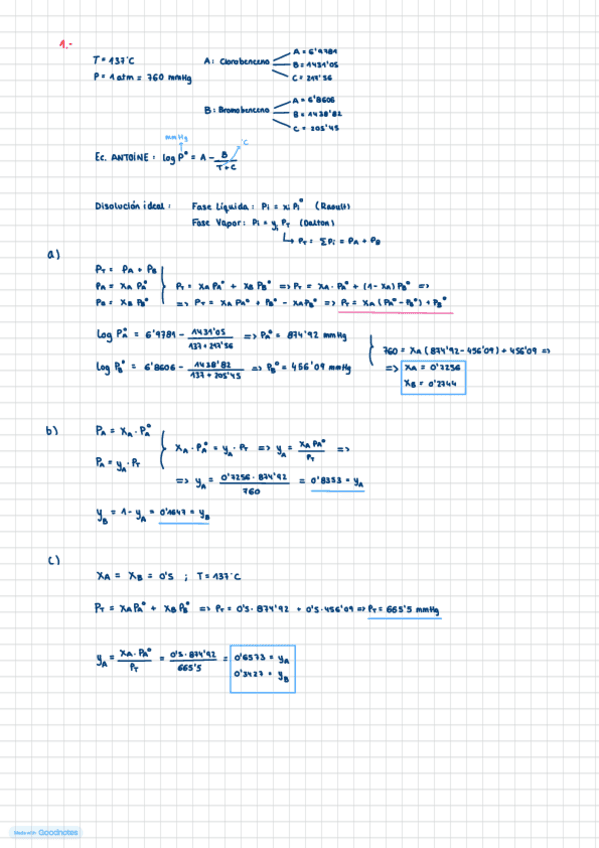 1.-
T = 137°C
P = 1 atm = 760 mmHg
A: Clorobenceno
A = 6'9781
B = 1431'05
C = 217'56
B: Bromobenceno
A = 6'8606
B = 1438'82
C = 205'45
mmHg
°C
Ec. ANTOINE: log P° = A - B / (T+C)
Disolución ideal: Fase Líquida: Pi = xi Pi° (Raoult)
Fase Vapor: Pi = yi PT (Dalton)
↳ PT = ΣPi = PA + PB
a)
PT = PA + PB
PA = XA PA°
PB = XB PB°
PT = XA PA° + XB PB° => PT = XA· PA° + (1-XA) PB° =>
=> PT = XA PA° + PB° - XA PB° => PT = XA (PA° - PB°) + PB°
log PA° = 6'9781 - 1431'05 / (137+217'56) => PA° = 874'92 mmHg
log PB° = 6'8606 - 1438'82 / (137+205'45) => PB° = 456'09 mmHg
760 = XA (874'92 - 456'09) + 456'09 =>
=> XA = 0'7256
XB = 0'2744
b)
PA = XA · PA°
PA = yA · PT
XA · PA° = yA · PT => yA = XA PA° / PT =>
=> yA = 0'7256 · 874'92 / 760 = 0'8353 = yA
yB = 1 - yA = 0'1647 = yB
c)
XA = XB = 0'5 ; T = 137°C
PT = XA PA° + XB PB° => PT = 0'5 · 874'92 + 0'5 · 456'09 => PT = 665'5 mmHg
yA = XA · PA° / PT = 0'5 · 874'92 / 665'5 = 0'6573 = yA
0'3427 = yB
Made with Goodnotes